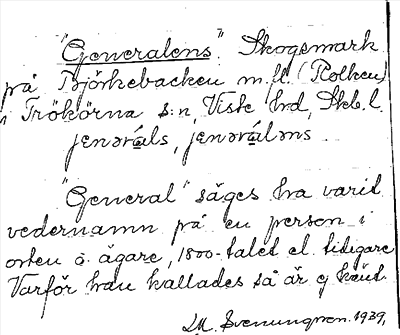 "Generalens" Skogsmark
på Björkebacken m.fl. (Rolken)
i Trökörna s:n, Viste hrd, Skb.l.
jenəráls, jenəráləns
"General" säges ha varit
vedernamn på en person i
orten ö. ägare, 1800-talet el. tidigare
Varför han kallades så är ej känt.
Svenungsson. 1939,